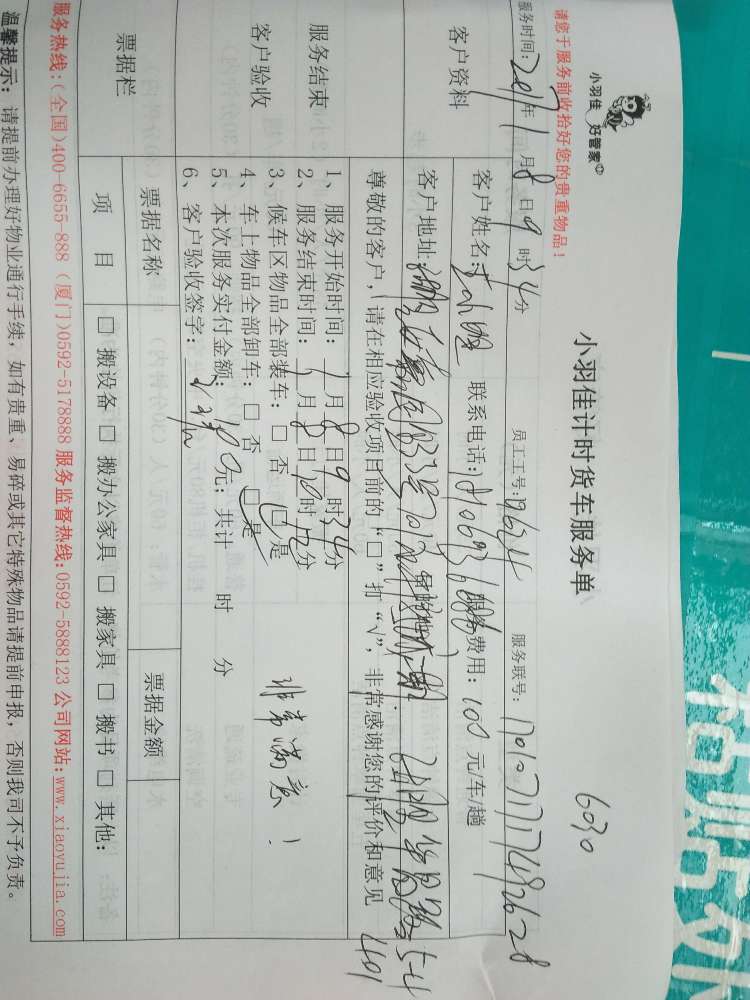 小羽佳 好管家
小羽佳计时货车服务单
6030
请您于服务前收拾好您的贵重物品！
服务时间：2017年1月8日9时34分 员工工号：12624 服务联号：
客户资料
客户姓名： 联系电话： 服务费用：100元/车/趟
客户地址：
尊敬的客户，请在相应验收项目前的“□”扣“√”，非常感谢您的评价和意见
401
服务结束
客户验收
1、服务开始时间：1月8日9时34分
2、服务结束时间：1月8日10时12分
3、候车区物品全部装车：□否 □是
4、车上物品全部卸车：□否 □是
5、本次服务实付金额：元；共计 时 分
6、客户验收签字：
非常满意！
票据栏
票据名称
票据金额
项 目
□搬设备 □搬办公家具 □搬家具 □搬书 □其他：
服务热线：(全国)400-6655-888 (厦门)0592-5178888 服务监督热线：0592-5888123 公司网站：www.xiaoyujia.com
温馨提示：请提前办理好物业通行手续，如有贵重、易碎或其它特殊物品请提前申报，否则我司不予负责。